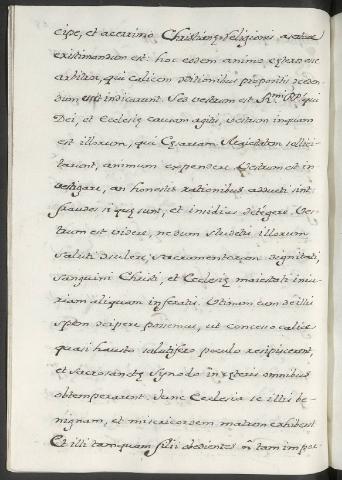 cipe, et acerrimo Christianę Religionis
existimandum est: hoc eodem animo
arbitror, qui calicem rationibus propositis
dum esse indicarunt. Sed vestrum est Rmi PP. qui
Dei, et Ecclesię causam agitis, vestrum inquam
est illorum, qui Cęsaream Maiestatem sollici-
tarunt, animum expendere. Vestrum est in-
vestigare, an honestis rationibus adducti sint
fraudes si quę sunt, et insidias detegere. Ves-
trum est videre, ne dum studetis illorum
saluti Sacramentorum dignitati,
sanguini Christi, et Ecclesię maiestati iniu-
riam aliquam inferatis. Utinam eum de illis
spem possemus, ut concesso calice
quasi hausto salutifero poculo resipiscerent,
et Sacrosanctę Synodo in cęteris omnibus
obtemperarent. Ecclesia se illis be-
nignam, et misericordem matrem exhiberet
Et illi tamquam filii obedientes